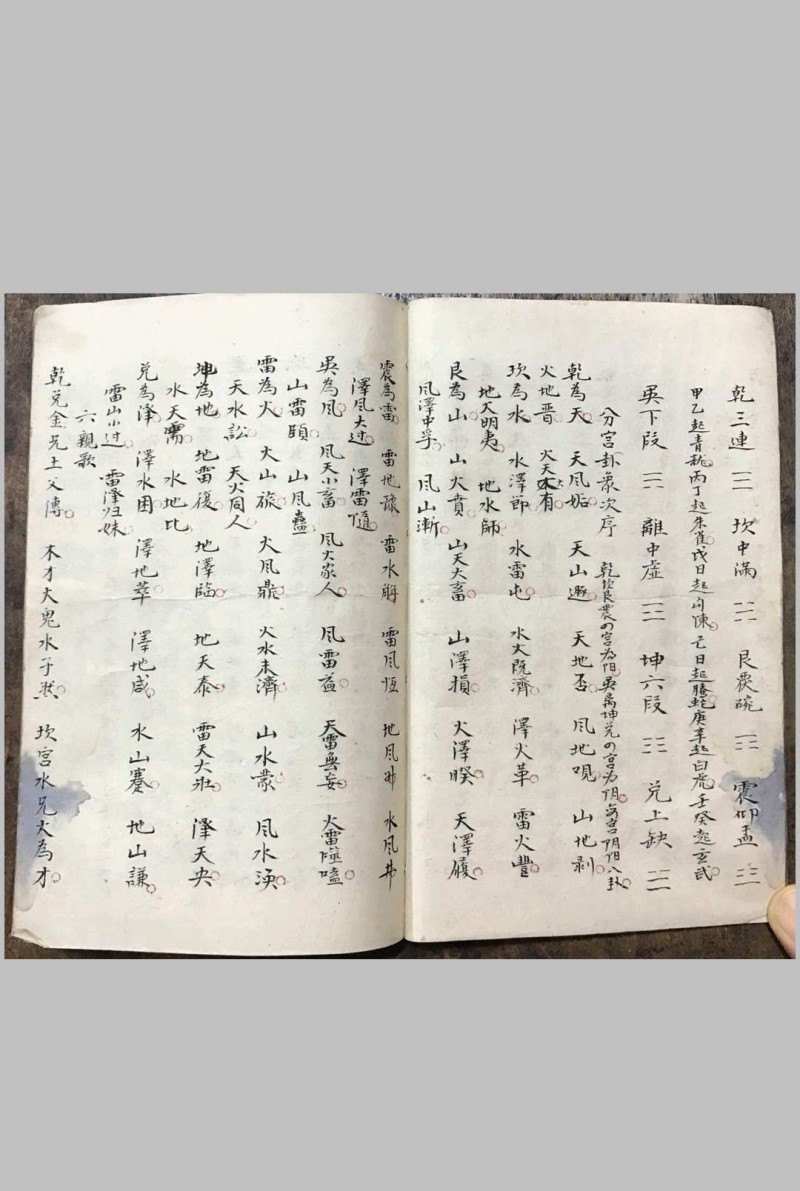 乾三連 ☰ 坎中滿 ☵ 艮覆碗 ☶ 震仰盂 ☳
甲乙起青龍丙丁起朱雀戊日起勾陳己日起螣蛇庚辛起白虎壬癸起玄武
巽下段 ☴ 離中虛 ☲ 坤六段 ☷ 兌上缺 ☱
分宮卦象次序 乾坎艮震の宮為阳巽离坤兌の宮为阴每宮阴阳八卦
乾為天 天風姤 天山遯 天地否 風地观 山地剥
火地晋 火天大有
坎為水 水澤節 水雷屯 水火既濟 澤火革 雷火豐
地火明夷 地水師
艮為山 山火賁 山天大畜 山澤損 火澤睽 天澤履
風澤中孚 風山漸
震為雷 雷地豫 雷水解 雷風恆 地風升 水風井
澤風大过 澤雷隨
巽為風 風天小畜 風火家人 風雷益 天雷無妄 火雷噬嗑
山雷頤 山風蠱
雷為火 火山旅 火風鼎 火水未濟 山水蒙 風水渙
天水訟 天火同人
坤為地 地雷復 地澤臨 地天泰 雷天大壯 澤天央
水天需 水地比
兌為澤 澤水困 澤地萃 澤地咸 水山蹇 地山謙
雷山小过 雷澤归妹
六親歌
乾兌金兄土父傳 木才火鬼水子然 坎宮水兄火為才